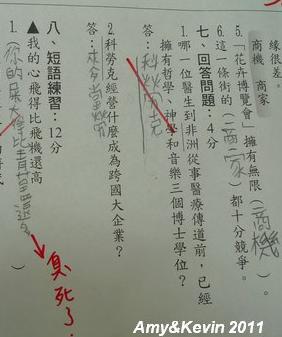 緣很差。
商機 商家
5.「花卉博覽會」擁有無限(商機)。
6.這一條街的(商家)都十分競爭。
七、回答問題：4分
1.哪一位醫生到非洲從事醫療傳道前，已經
擁有哲學、神學和音樂三個博士學位？
答：科勞克
2.科勞克經營什麼成為跨國大企業？
答：麥當勞
八、短語練習：12分
▲我的心飛得比飛機還高
1.(你的呆大比青苗還多
臭死了
)
Amy&Kevin 2011